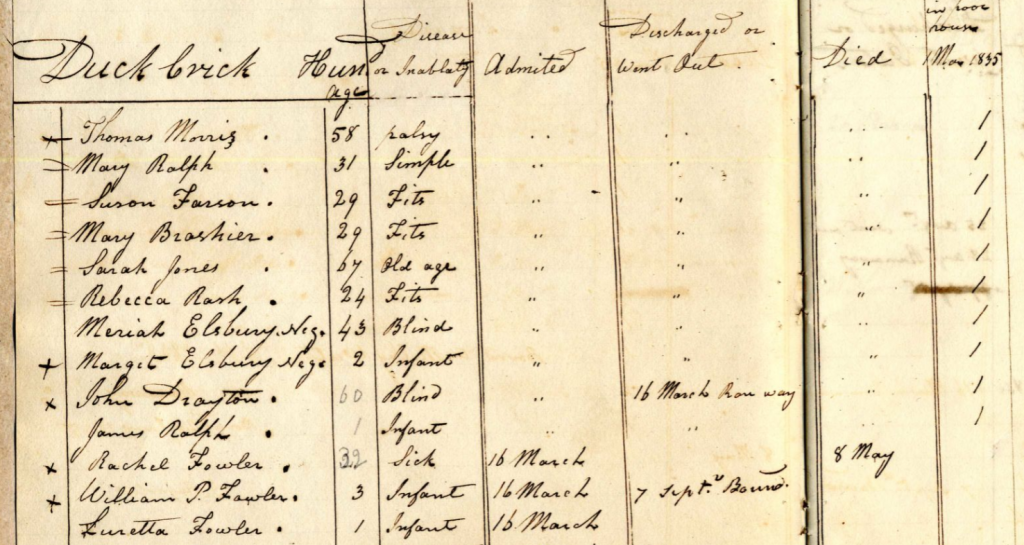 Duck Crick Hun. age Disease or Inablaty Admited Discharged or Went Out Died in poor house 1 Mar 1835
x Thomas Morris . 58 palsy " " " 1
= Mary Ralph . 31 Simple " " " 1
= Suson Farson . 29 Fits " " " 1
= Mary Brashier . 29 Fits " " " 1
= Sarah Jones . 67 Old age " " " 1
= Rebecca Rash . 24 Fits " " " 1
Meriah Elsbury Neg. 43 Blind " " " 1
x Marget Elsbury Neg. 2 Infant " " " 1
x John Drayton . 60 Blind " 16 March Ron way " 1
James Ralph . 1 Infant " " " 1
x Rachel Fowler . 32 Sick 16 March 8 May
x William P. Fowler . 3 Infant 16 March 7 Sept. Bound.
Luretta Fowler . 1 Infant 16 March